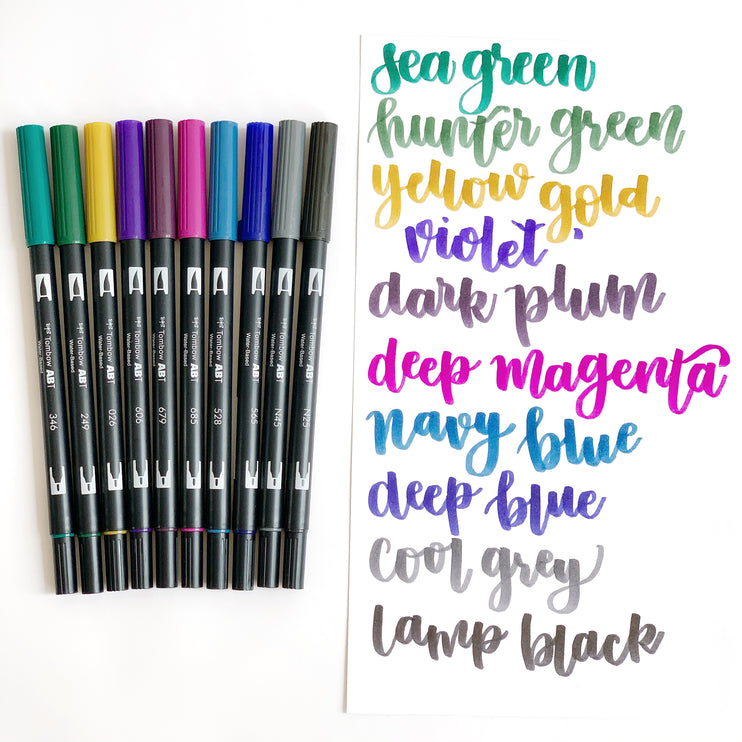 Tombow ABT
Water-Based
346
Tombow ABT
Water-Based
249
Tombow ABT
Water-Based
026
Tombow ABT
Water-Based
606
Tombow ABT
Water-Based
679
Tombow ABT
Water-Based
685
Tombow ABT
Water-Based
528
Tombow ABT
Water-Based
565
Tombow ABT
Water-Based
N45
Tombow ABT
Water-Based
N25
sea green
hunter green
yellow gold
violet
dark plum
deep magenta
navy blue
deep blue
cool grey
lamp black